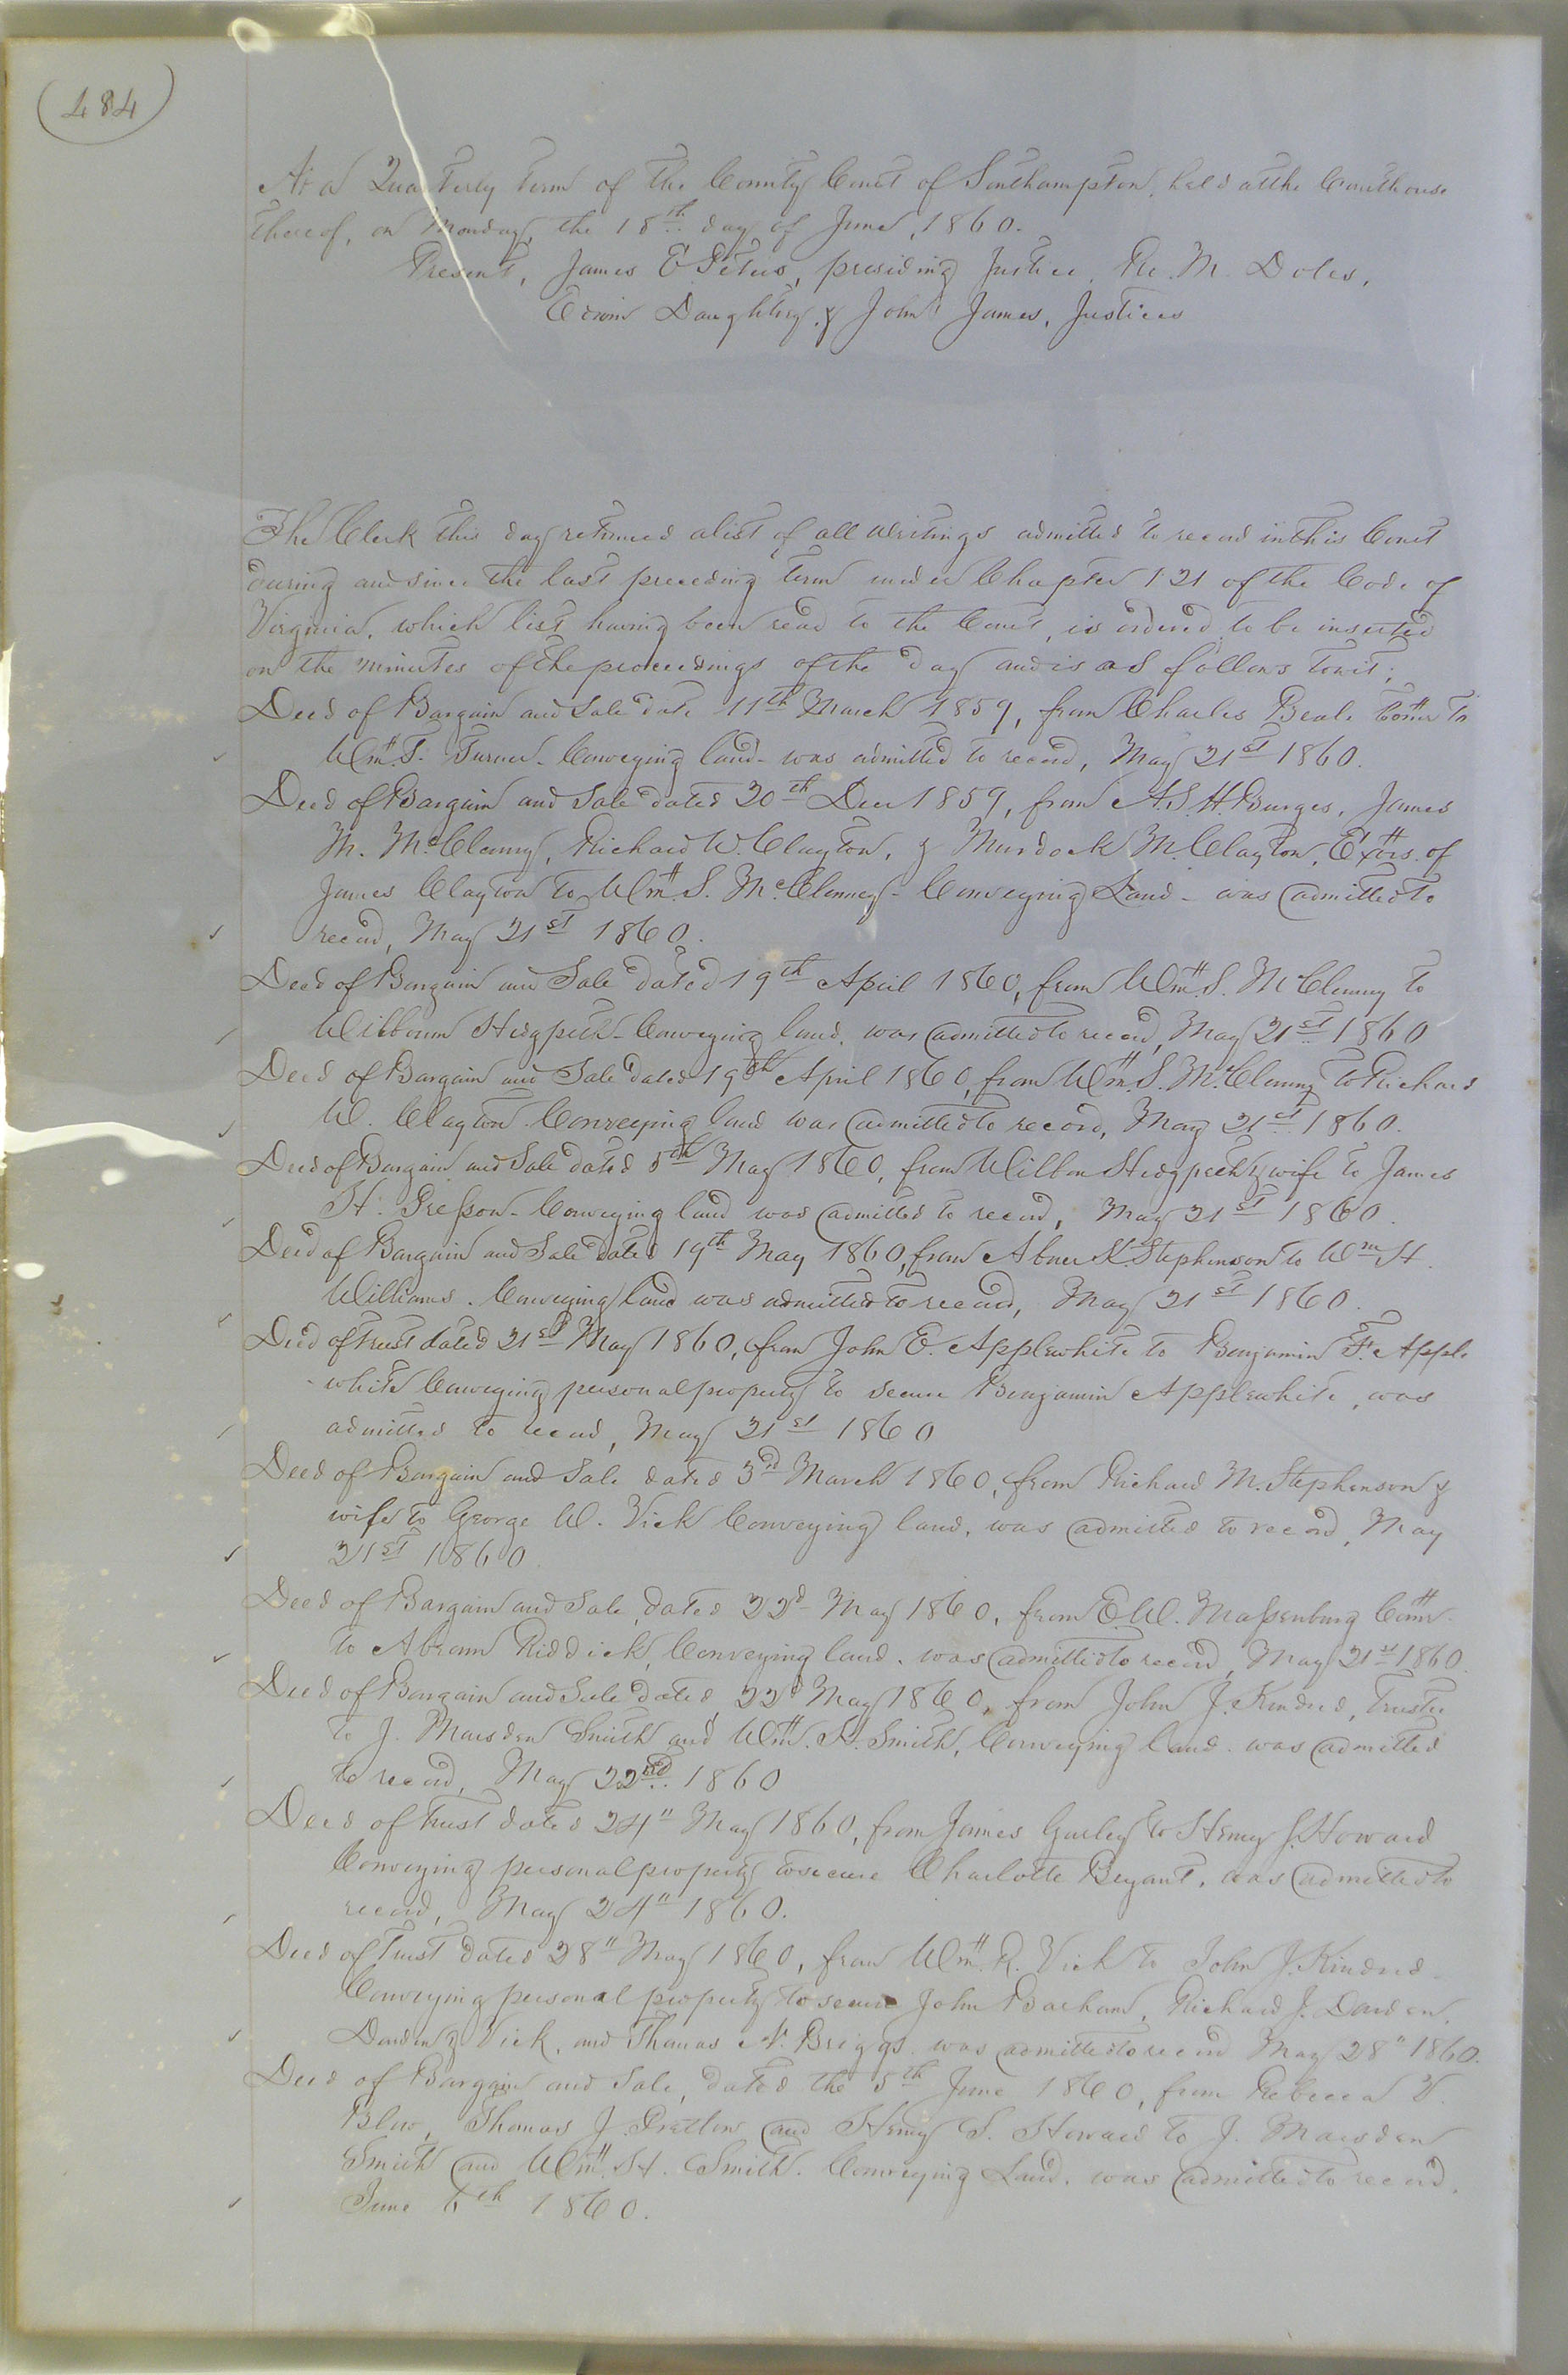 (484)
At a Quarterly term of the County Court of Southampton, held at the Courthouse
thereof, on Monday, the 18th day of June, 1860.
Present, James E Peters, presiding Justice, Ro. M. Doles,
Edwin Daughtry, & John James, Justices
The Clerk this day returned a list of all writings admitted to record in this Court
during and since the last preceding term under Chapter 121 of the Code of
Virginia, which list having been read to the Court, is ordered to be inserted
on the minutes of the proceedings of the day and is as follows towit;
Deed of Bargain and Sale date 11th March 1859, from Charles Beale Comr to
Wm. T. Turner - Conveying land - was admitted to record, May 21st 1860.
Deed of Bargain and Sale dated 20th Decr 1859, from A. S. H. Burges, James
M. McClenny, Richard W. Clayton, & Murdock M. Clayton, Extrs. of
James Clayton to Wm. S. McClenney - Conveying Land - was admitted to
record, May 21st 1860.
Deed of Bargain and Sale dated 19th April 1860, from Wm. S. McClenny to
Wilbourn Hedgpeth - Conveying land, was admitted to record, May 21st 1860
Deed of Bargain and Sale dated 19th April 1860, from Wm. S. McClenny to Richard
W. Clayton Conveying land was admitted to record, May 21st 1860.
Deed of Bargain and Sale dated 5th May 1860, from Wilbon Hedgpeth & wife to James
H. Presson - Conveying land was admitted to record, May 21st 1860.
Deed of Bargain and Sale dated 19th May 1860, from Abner K. Stephenson to Wm H.
Williams. Conveying land was admitted to record, May 21st 1860.
Deed of trust dated 21st May 1860, from John E. Applewhite to Benjamin F. Apple
-white Conveying personal property to secure Benjamin Applewhite, was
admitted to record, May 21st 1860
Deed of Bargain and Sale dated 3rd March 1860, from Richard M. Stephenson &
wife to George W. Vick Conveying land, was admitted to record, May
21st 1860.
Deed of Bargain and Sale, dated 22d May 1860, from E. W. Massenburg Comr.
to Abram Riddick, Conveying land. was admitted to record, May 21st 1860.
Deed of Bargain and Sale dated 22d May 1860, from John J. Kindred, Trustee
to J. Marsden Smith and Wm. H. Smith, Conveying land. was admitted
to record, May 22nd. 1860
Deed of trust dated 24" May 1860, from James Gurley to Henry S. Howard
Conveying personal property to secure Charlotte Bryant, was admitted to
record, May 24" 1860.
Deed of Trust dated 28" May 1860, from Wm. R. Vick to John J. Kindred -
Conveying personal property to secure John Barham, Richard J. Darden,
Darden & Vick, and Thomas N. Briggs. was admitted to record May 28" 1860.
Deed of Bargain and Sale, dated the 5th June 1860, from Rebecca V.
Blow, Thomas J. Pretlow and Henry S. Howard to J. Marsden
Smith and Wm. H. Smith. Conveying Land. was admitted to record.
June 6th 1860.